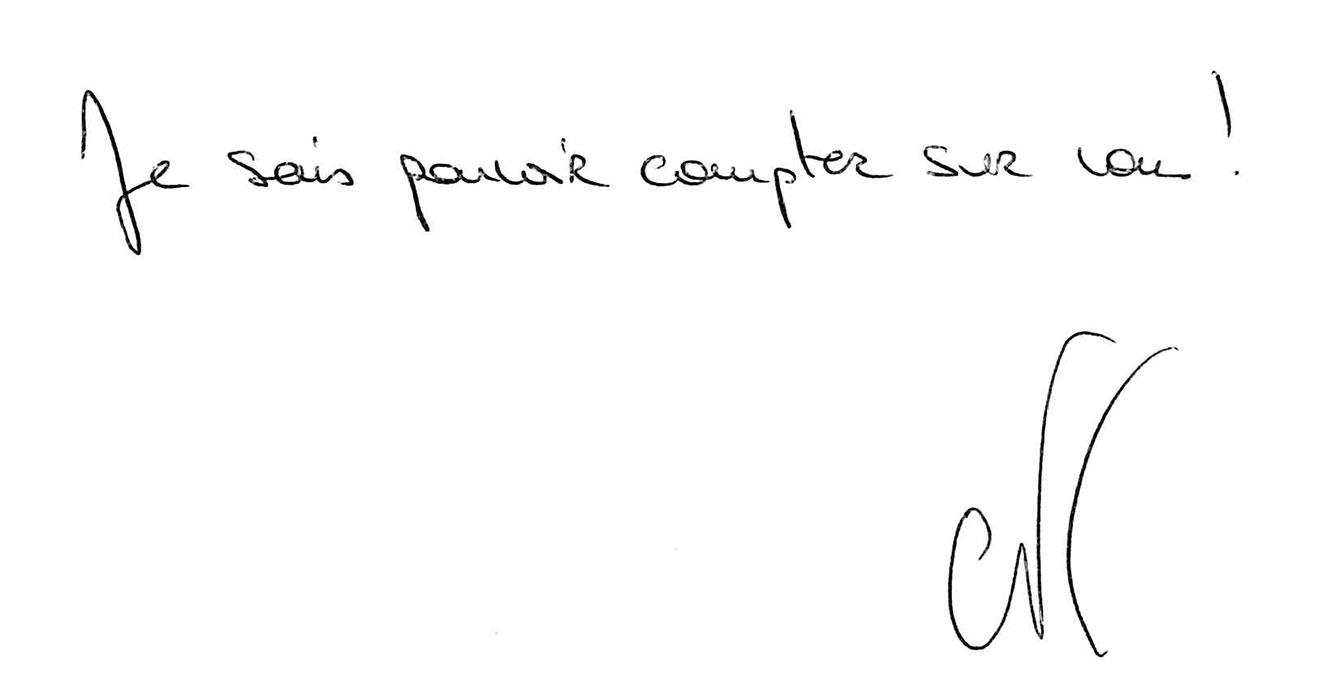 Je sais pouvoir compter sur vous !